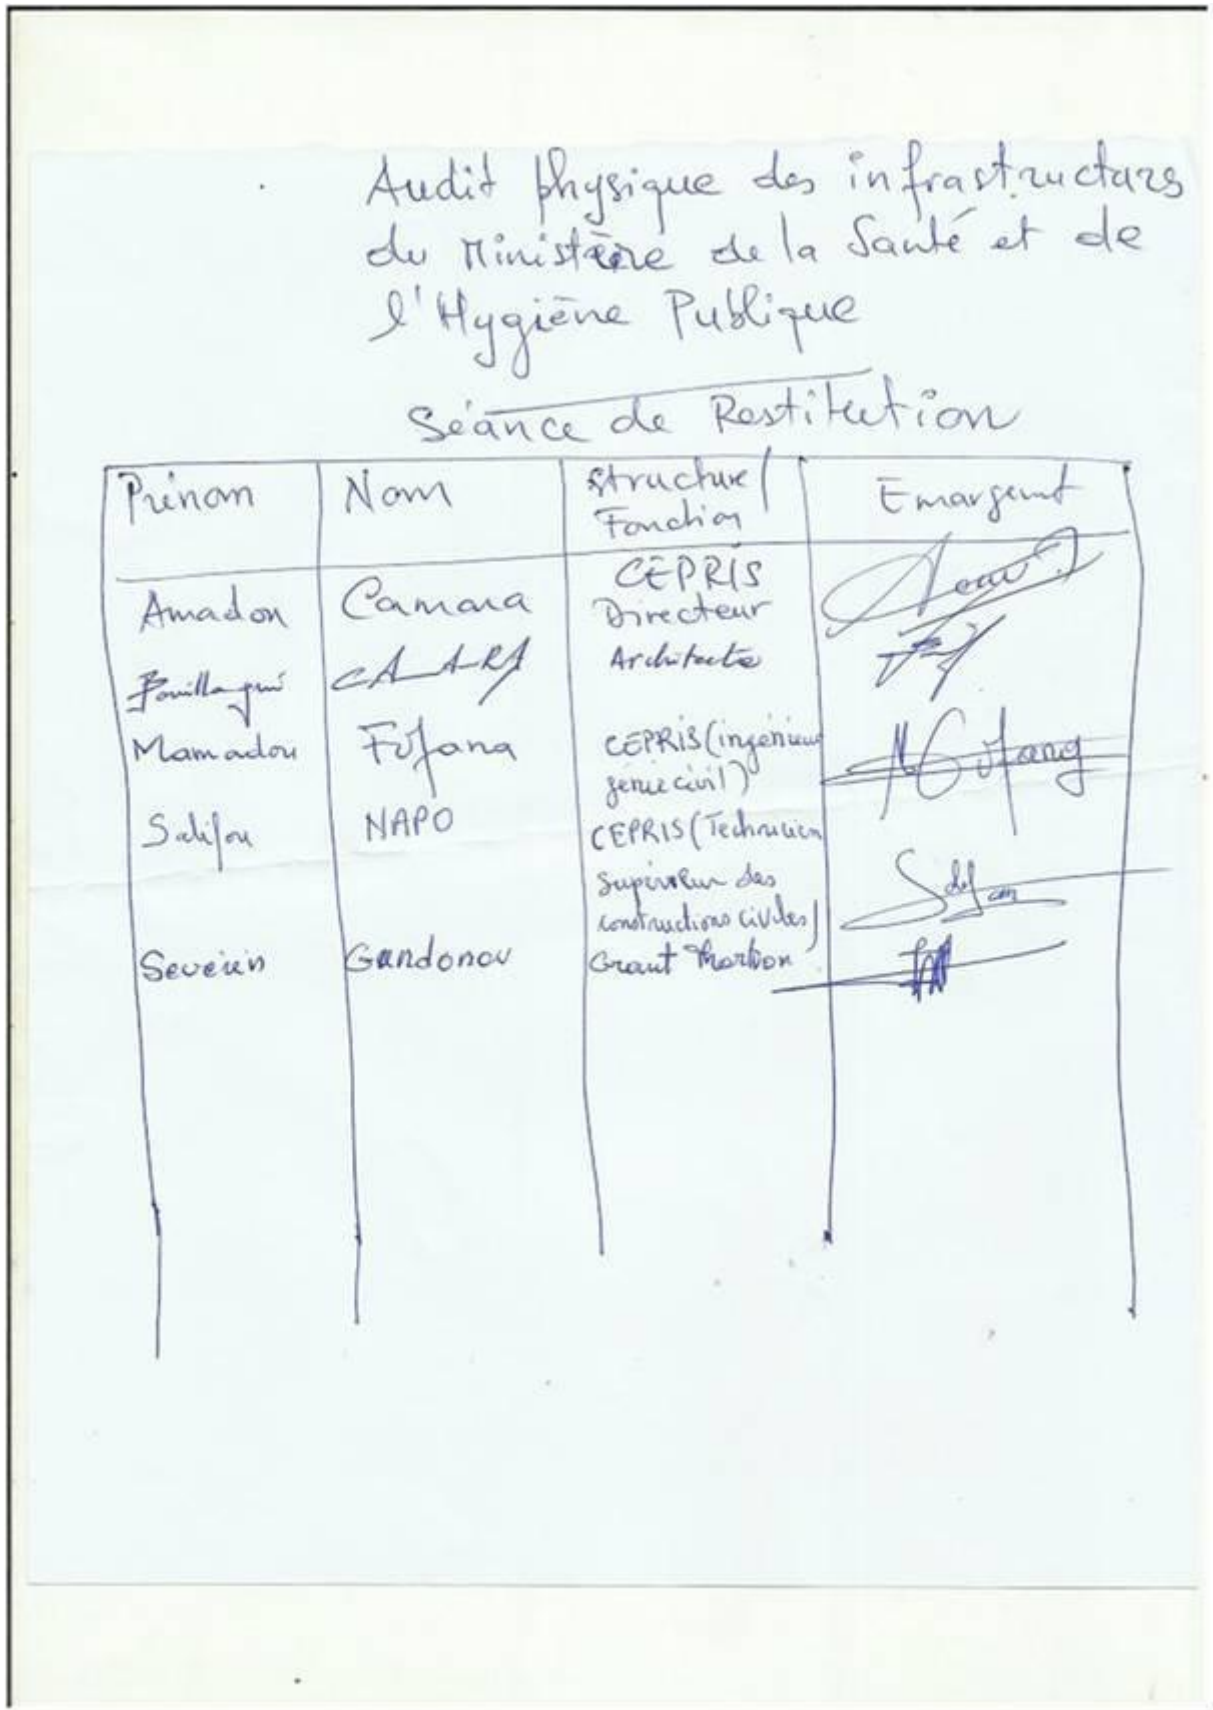 Audit physique des infrastructures
du Ministère de la Santé et de
l'Hygiène Publique
Séance de Restitution
Prénom Nom Structure/ Emargemt
Fonction
CEPRIS
Amadou Camara Directeur
Architecte
Mamadou Fofana CEPRIS (ingénieur
génie civil)
Salifou NAPO CEPRIS (Technicien
Superviseur des
constructions civiles)
Severin Gandonou Grant Thornton